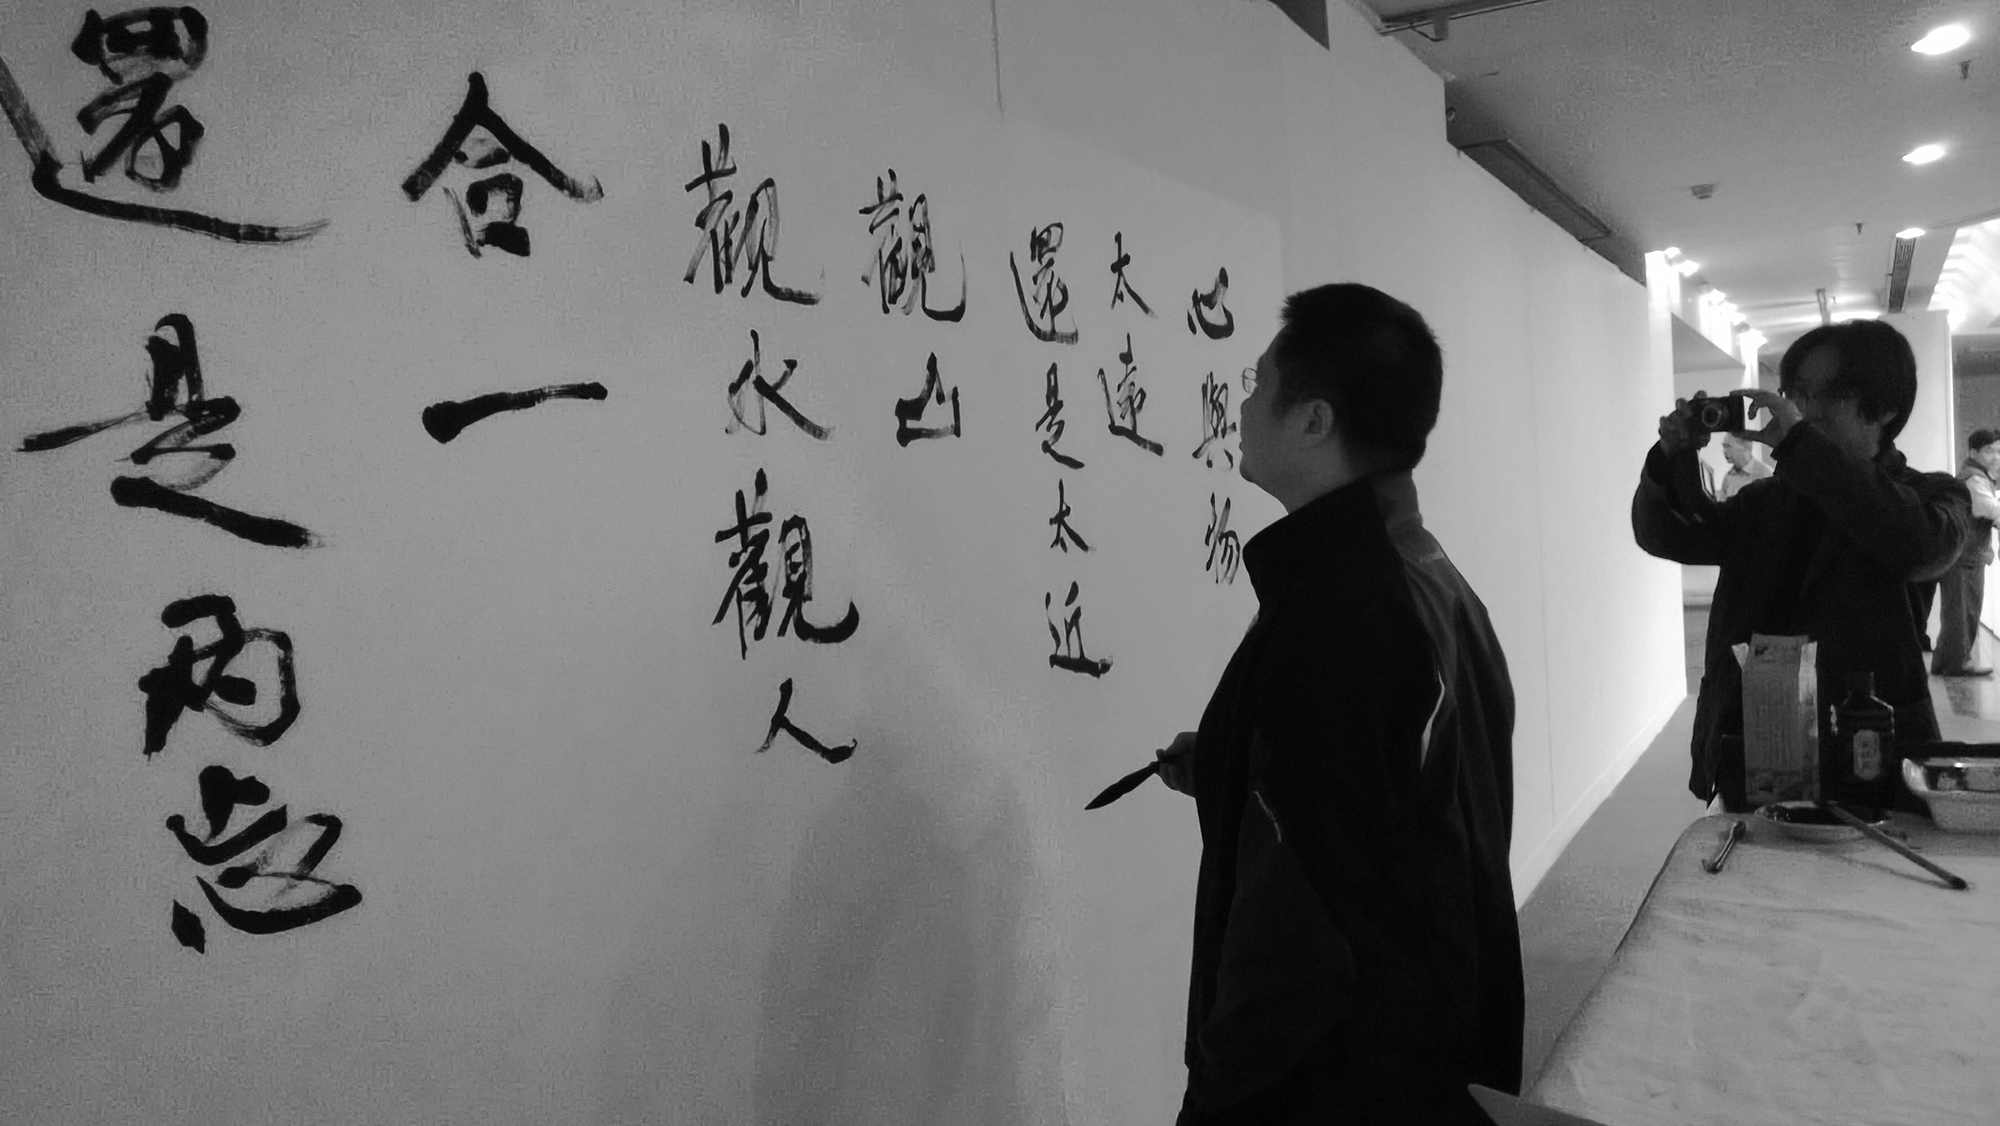 心與物
太遠
還是太近
觀山
觀水觀人
合一
還是兩忘